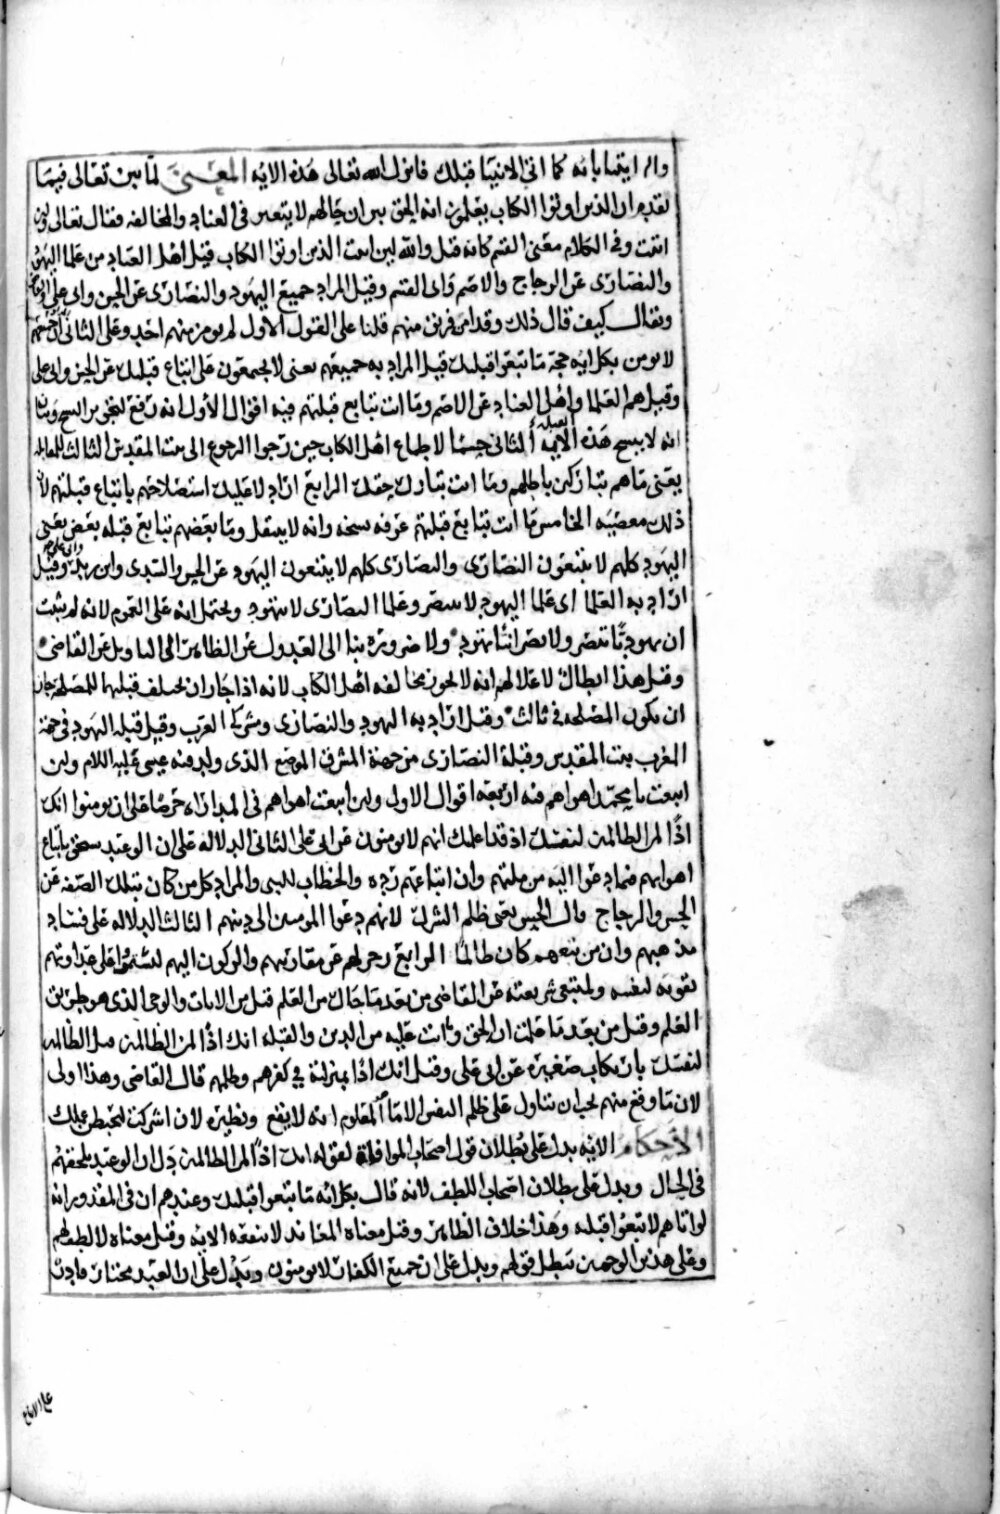 وان ايتنا باية كما اتى الانبيا قبلك فانزل الله تعالى هذه الاية المعنى لما بين تعالى فيما
تقدم ان الذين اوتوا الكتاب يعلمون انه الحق بين ان حالهم لا يتغير في العناد والمخالفه فقال تعالى ولين
اتيت وفي الكلام معنى القسم كانه قيل والله لين اتيت الذين اوتوا الكتاب قيل اهل العناد من علما اليهود
والنصارى عن الزجاج والاصم وابى القسم وقيل المراد جميع اليهود والنصارى عن الحسن وابى علي
ويقال كيف قال ذلك وقد امن فريق منهم قلنا على القول الاول لم يومن منهم احد وعلى الثاني ان جميعهم
لا يومن بكل اية حجة ما تبعوا قبلتك قيل المراد به جميعهم يعني لا يجمعون على اتباع قبلتك عن الحسن وابى على
وقيل هم العلما واهل العناد عن الاصم وما انت بتابع قبلتهم فيه اقوال الاول انه رفع لتجويز النسخ وبيان
انه لا ينسخ هذه القبلة الثاني حسما لاطماع اهل الكتاب حين رجوا الرجوع الى بيت المقدس الثالث للمقابلة
يعني ما هم بتاركين باطلهم وما انت بتارك حقك الرابع اراد لا عليك استصلاحهم باتباع قبلتهم لان
ذلك معصيه الخامس ما انت بتابع قبلتهم عرفه نسخه وانه لا ينتقل وما بعضهم بتابع قبلة بعض يعني
اليهود كلهم لا يتبعون النصارى والنصارى كلهم لا يتبعون اليهود عن الحسن والسدى وابن زيد وابى على وقيل
اراد به العلما اى علما اليهود لا يتنصر وعلما النصارى لا يتهود ويحتمل انه على العموم لانه لم يثبت
ان يهوديا تنصر ولا نصرانيا تهود ولا ضرورة بنا الى العدول عن الظاهر الى التاويل عن القاضي
وقيل هذا ابطال لاعتلالهم انه لا يجوز مخالفه اهل الكتاب لانه اذا جاز ان يختلف قبلتهما للمصلحة جاز
ان يكون المصلحه في ثالث وقيل اراد به اليهود والنصارى ومشركي العرب وقيل قبلة اليهود في جهة
المغرب بيت المقدس وقبلة النصارى من جهة المشرق الموضع الذي ولد فيه عيسى عليه السلام ولين
اتبعت يا محمد اهواهم فيه اربعة اقوال الاول ولين اتبعت اهواهم في المداراه حرصا على ان يومنوا انك
اذا لمن الظالمين لنفسك اذ قد اعلمتك انهم لا يومنون عن ابى على الثاني الدلاله على ان الوعيد يستحق باتباع
اهوايهم فيما دعوا اليه من ملتهم وان اتباعهم رده والخطاب للنبى والمراد كل من كان بتلك الصفه عن
الحسن والزجاج قال الحسن يعني ظلم الشرك لانهم دعوا المومنين الى دينهم الثالث الدلاله على فساد
مذهبهم وان من تبعهم كان ظالما الرابع زجر لهم عن مقاربتهم والركون اليهم ليستمروا على عداوتهم
تقوية لنفسه ولمتبعي شريعته عن القاضي من بعد ما جاك من العلم قيل من الايات والوحي الذي هو طريق
العلم وقيل من بعد ما علمت ان الحق ما انت عليه من الدين والقبله انك اذا لمن الظالمين مثل الظالم
لنفسك بارتكاب صغيرة عن ابى على وقيل انك اذا بمنزلة في كفرهم وظلمهم قال القاضي وهذا اولى
لان ما وقع منهم يجب ان يتاول على ظلم النفس الا ما المعلوم انه لا يقع ونظيره لان اشركت ليحبطن عملك
الاحكام الاية يدل على بطلان قول اصحاب الموافاة لقوله انك اذا لمن الظالمين دل ان الوعيد يلحقهم
في الحال ويدل على بطلان اصحاب اللطف لانه قال بكل اية ما تبعوا قبلتك وعندهم ان في المقدور اية
لو اتاهم لا تبعوا قبلته وهذا خلاف الظاهر وقيل معناه المعاند لا ينفعه الاية وقيل معناه لا لطف لهم
وعلى هذين الوجهين تبطل قولهم ويدل على ان جميع الكفار لا يومنون ويدل على ان العبد مختار قادر
على الاتباع